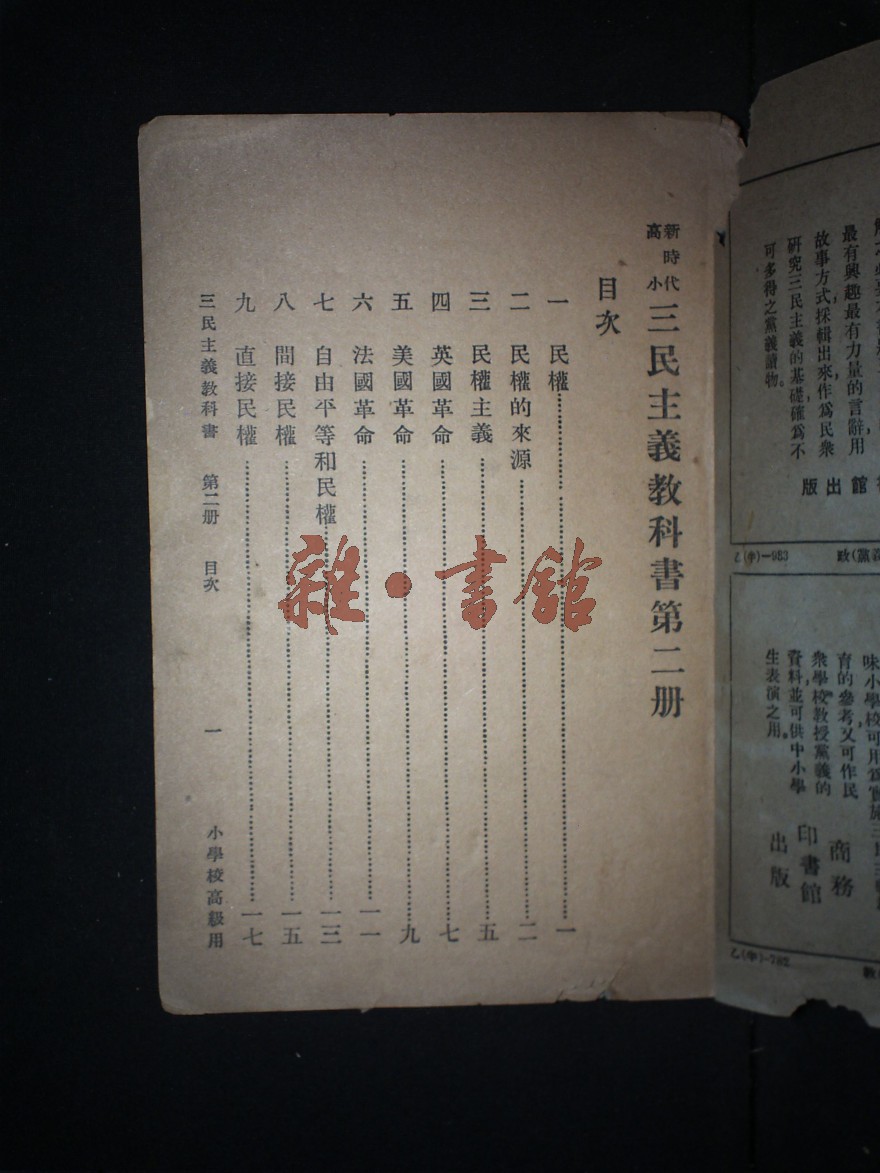 最有興趣最有力量的言辭用
故事方式,採輯出來作爲民衆
研究三民主義的基礎,確爲不
可多得之黨義讀物。
館出版
政(黨義
乙(辛)—983
味小學校可用爲實施三民主
育的參考,又可作民
衆學校教授黨義的
資料,並可供中小學
生表演之用。
商務
印書館
出版
新時代
高小
三民主義教科書第二册
目次
一 民權……一
二 民權的來源……二
三 民權主義……五
四 英國革命……七
五 美國革命……九
六 法國革命……一一
七 自由平等和民權……一三
八 間接民權……一五
九 直接民權……一七
三民主義教科書 第二册 目次 一 小學校高級用
雜·書館